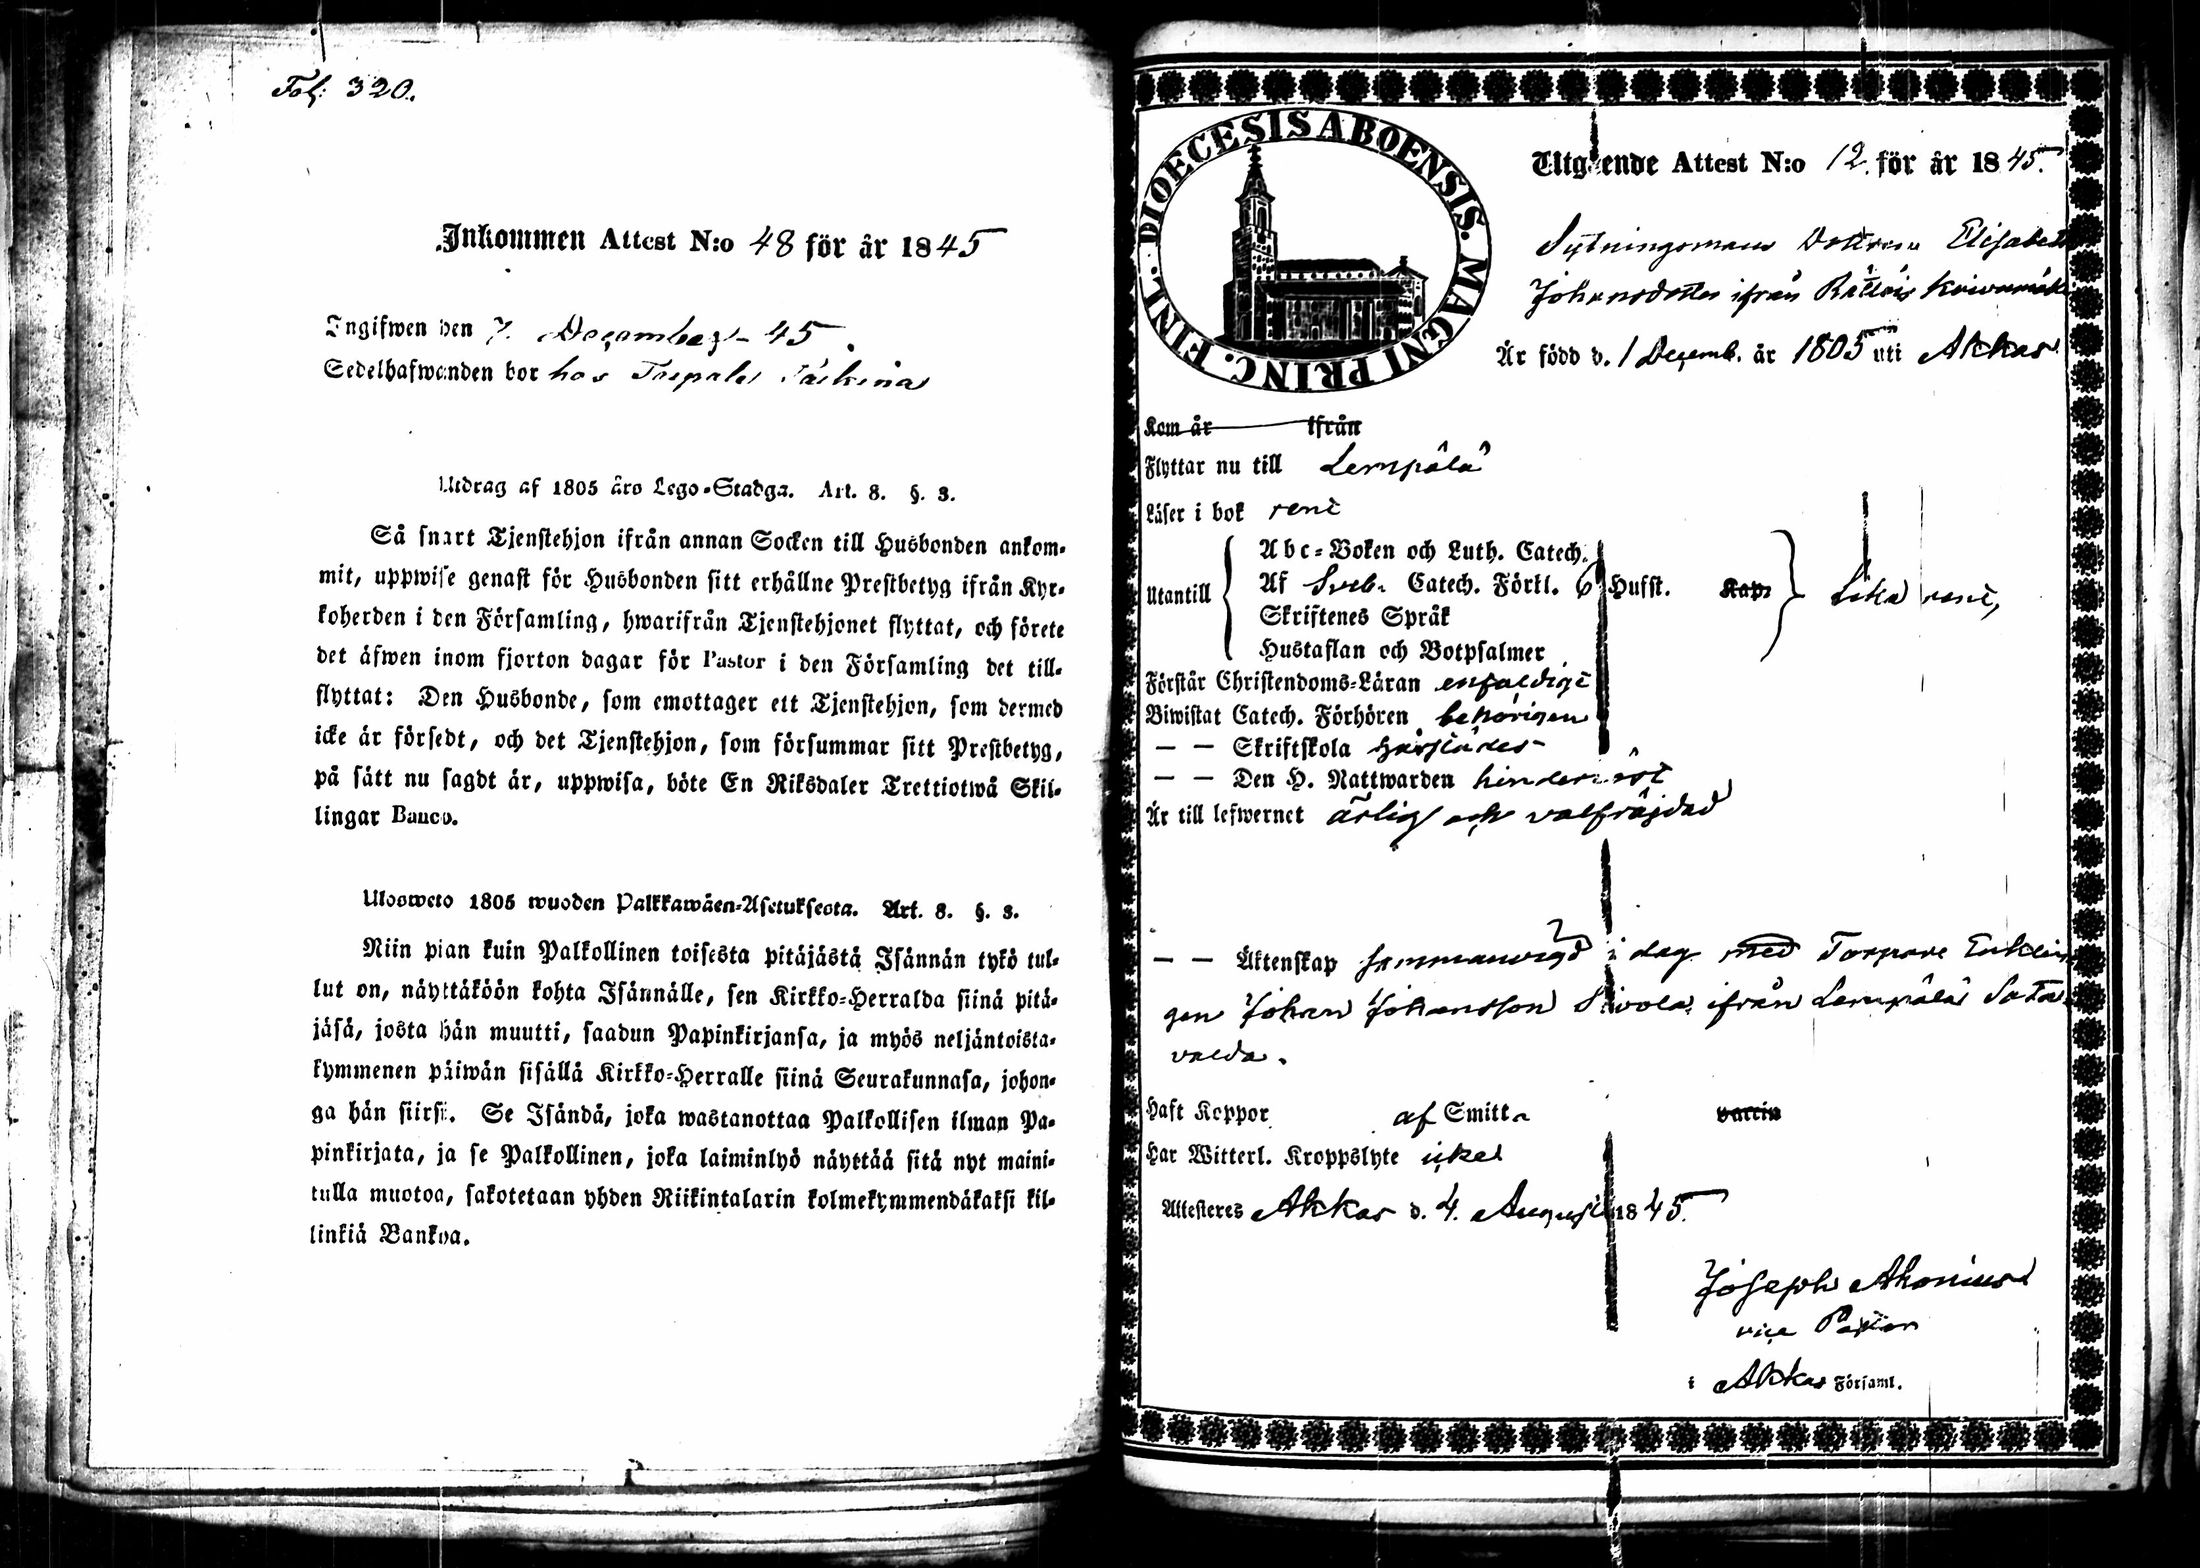 Fol: 320.
Inkommen Attest N:o 48 för år 1845
Ingifwen den 7. December 45.
Sedelhafwanden bor hos
Utdrag af 1805 års Lego-Stadga. Art. 8. §. 3.
Så snart Tjenstehjon ifrån annan Socken till Husbonden ankom-
mit, uppwise genast för Husbonden sitt erhållne Prestbetyg ifrån Kyr-
koherden i den Församling, hwarifrån Tjenstehjonet flyttat, och förete
det äfwen inom fjorton dagar för Pastor i den Församling det till-
flyttat: Den Husbonde, som emottager ett Tjenstehjon, som dermed
icke är försedt, och det Tjenstehjon, som försummar sitt Prestbetyg,
på sätt nu sagdt är, uppwisa, böte En Riksdaler Trettiotwå Skil-
lingar Banco.
Ulosweto 1805 wuoden Palkkawäen-Asetuksesta. Art. 8. §. 3.
Niin pian kuin Palkollinen toisesta pitäjästä Isännän tykö tul-
lut on, näyttäköön kohta Isännälle, sen Kirkko-Herralda siinä pitä-
jäsä, josta hän muutti, saadun Papinkirjansa, ja myös neljäntoista-
kymmenen päiwän sisällä Kirkko-Herralle siinä Seurakunnasa, johon-
ga hän siirsi. Se Isändä, joka wastanottaa Palkollisen ilman Pa-
pinkirjata, ja se Palkollinen, joka laiminlyö näyttää sitä nyt maini-
tulla muotoa, sakotetaan yhden Riikintalarin kolmekymmendäkaksi kil-
linkiä Bankoa.
DIOECESIS ABOENSIS. MAGNI PRINC. FINL.
Utgående Attest N:o 12. för år 1845.
Sytningsmans Dottren Elisabeth
Johansdotter ifrån
Är född d. 1 Decemb. år 1805 uti Akkas
Kom år ifrån
Flyttar nu till Lempälä
Läser i bok rent
Utantill
Abc-Boken och Luth. Catech.
Af Sveb. Catech. Förkl. 6 Hufst. Kap. lika rent,
Skriftenes Språk
Hustaflan och Botpsalmer
Förstår Christendoms-Läran enfaldigt
Biwistat Catech. Förhören behörigen
— — Skriftskola härstädes
— — Den H. Nattwarden hinderlöst
Är till lefwernet ärlig och välfräjdad
— — Äktenskap sammanvigd i dag med Torpare Enklin-
gen Johan Johansson Sivola ifrån Lempälä Sota-
valda.
Haft Koppor af Smitta vaccin
Har Witterl. Kroppslyte icke
Attesteres Akkas d. 4. Augusti 1845.
Joseph
vice Pastor
i Akkas Församl.